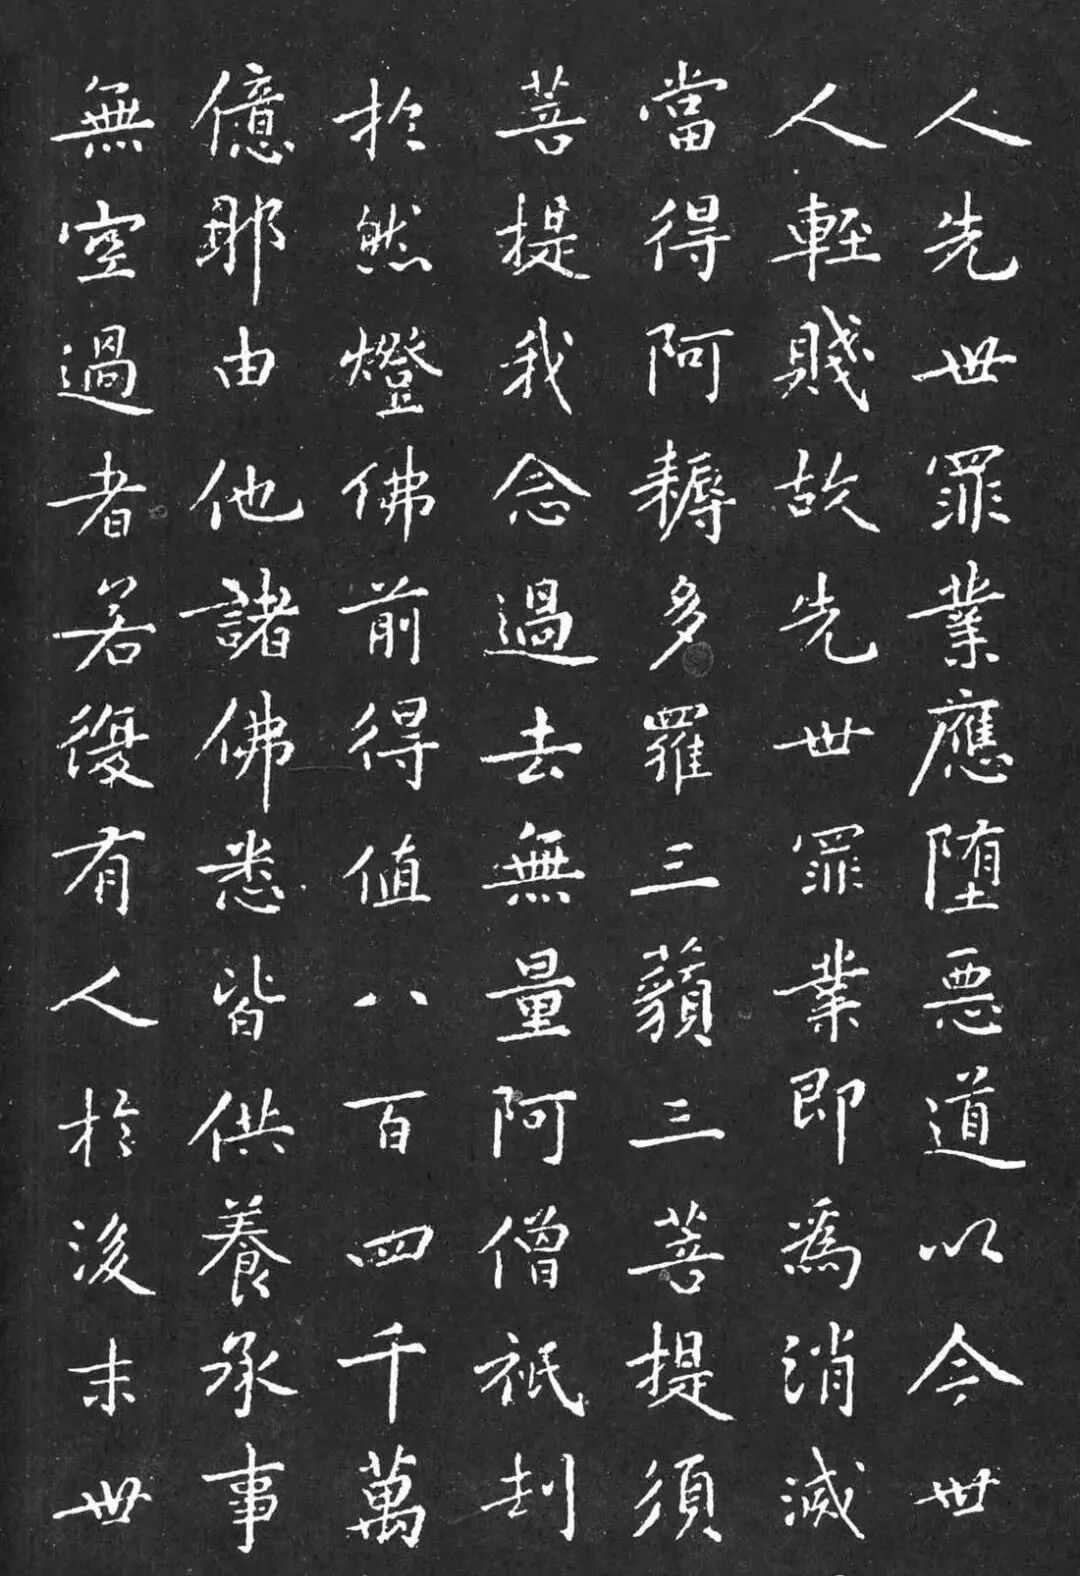 人先世罪業應堕惡道以今世
人輕賤故先世罪業即爲消滅
當得阿耨多羅三藐三菩提須
菩提我念過去無量阿僧祇刦
於然燈佛前得值八百四千萬
億那由他諸佛悉皆供養承事
無空過者若復有人於後末世